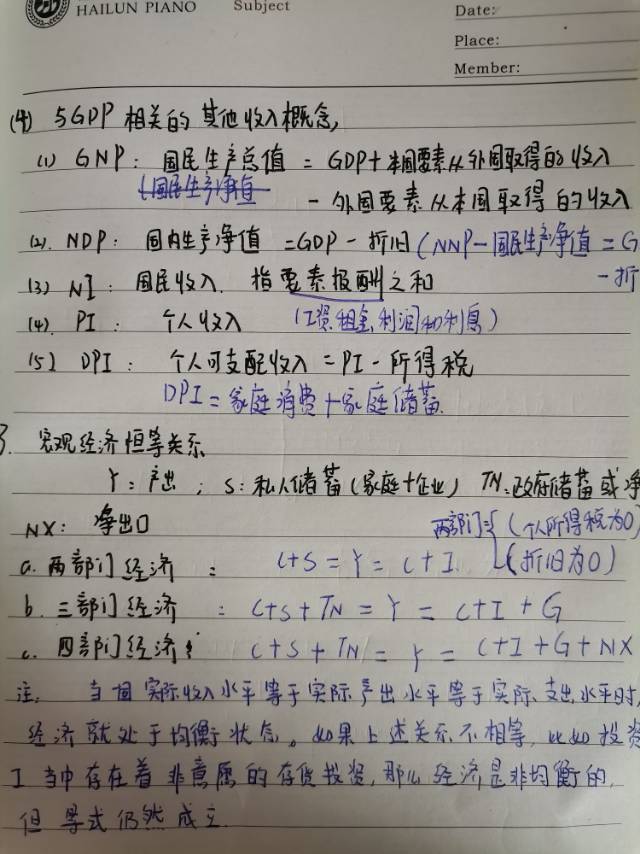 HAILUN PIANO
Subject
Date:
Place:
Member:
(4) 与GDP相关的其他收入概念,
(1) GNP: 国民生产总值 = GDP+本国要素从外国取得的收入
(国民生产净值
- 外国要素从本国取得的收入
(2). NDP: 国内生产净值 =GDP-折旧(NNP-国民生产净值=G
-折
(3) NI: 国民收入. 指要素报酬之和
(4). PI: 个人收入 (工资.租金.利润和利息)
(5) DPI: 个人可支配收入=PI-所得税
DPI=家庭消费+家庭储蓄.
3. 宏观经济恒等关系
Y:产出; S:私人储蓄(家庭+企业) TN:政府储蓄或净
NX: 净出口
两部门:{(个人所得税为0)
(折旧为0)
a. 两部门经济: C+S=Y=C+I.
b. 三部门经济: C+S+TN=Y=C+I+G
c. 四部门经济: C+S+TN=Y=C+I+G+NX
注. 当国实际收入水平等于实际产出水平等于实际支出水平时,
经济就处于均衡状态。如果上述关系不相等,比如投资
I当中存在着非意愿的存货投资,那么经济是非均衡的,
但等式仍然成立.